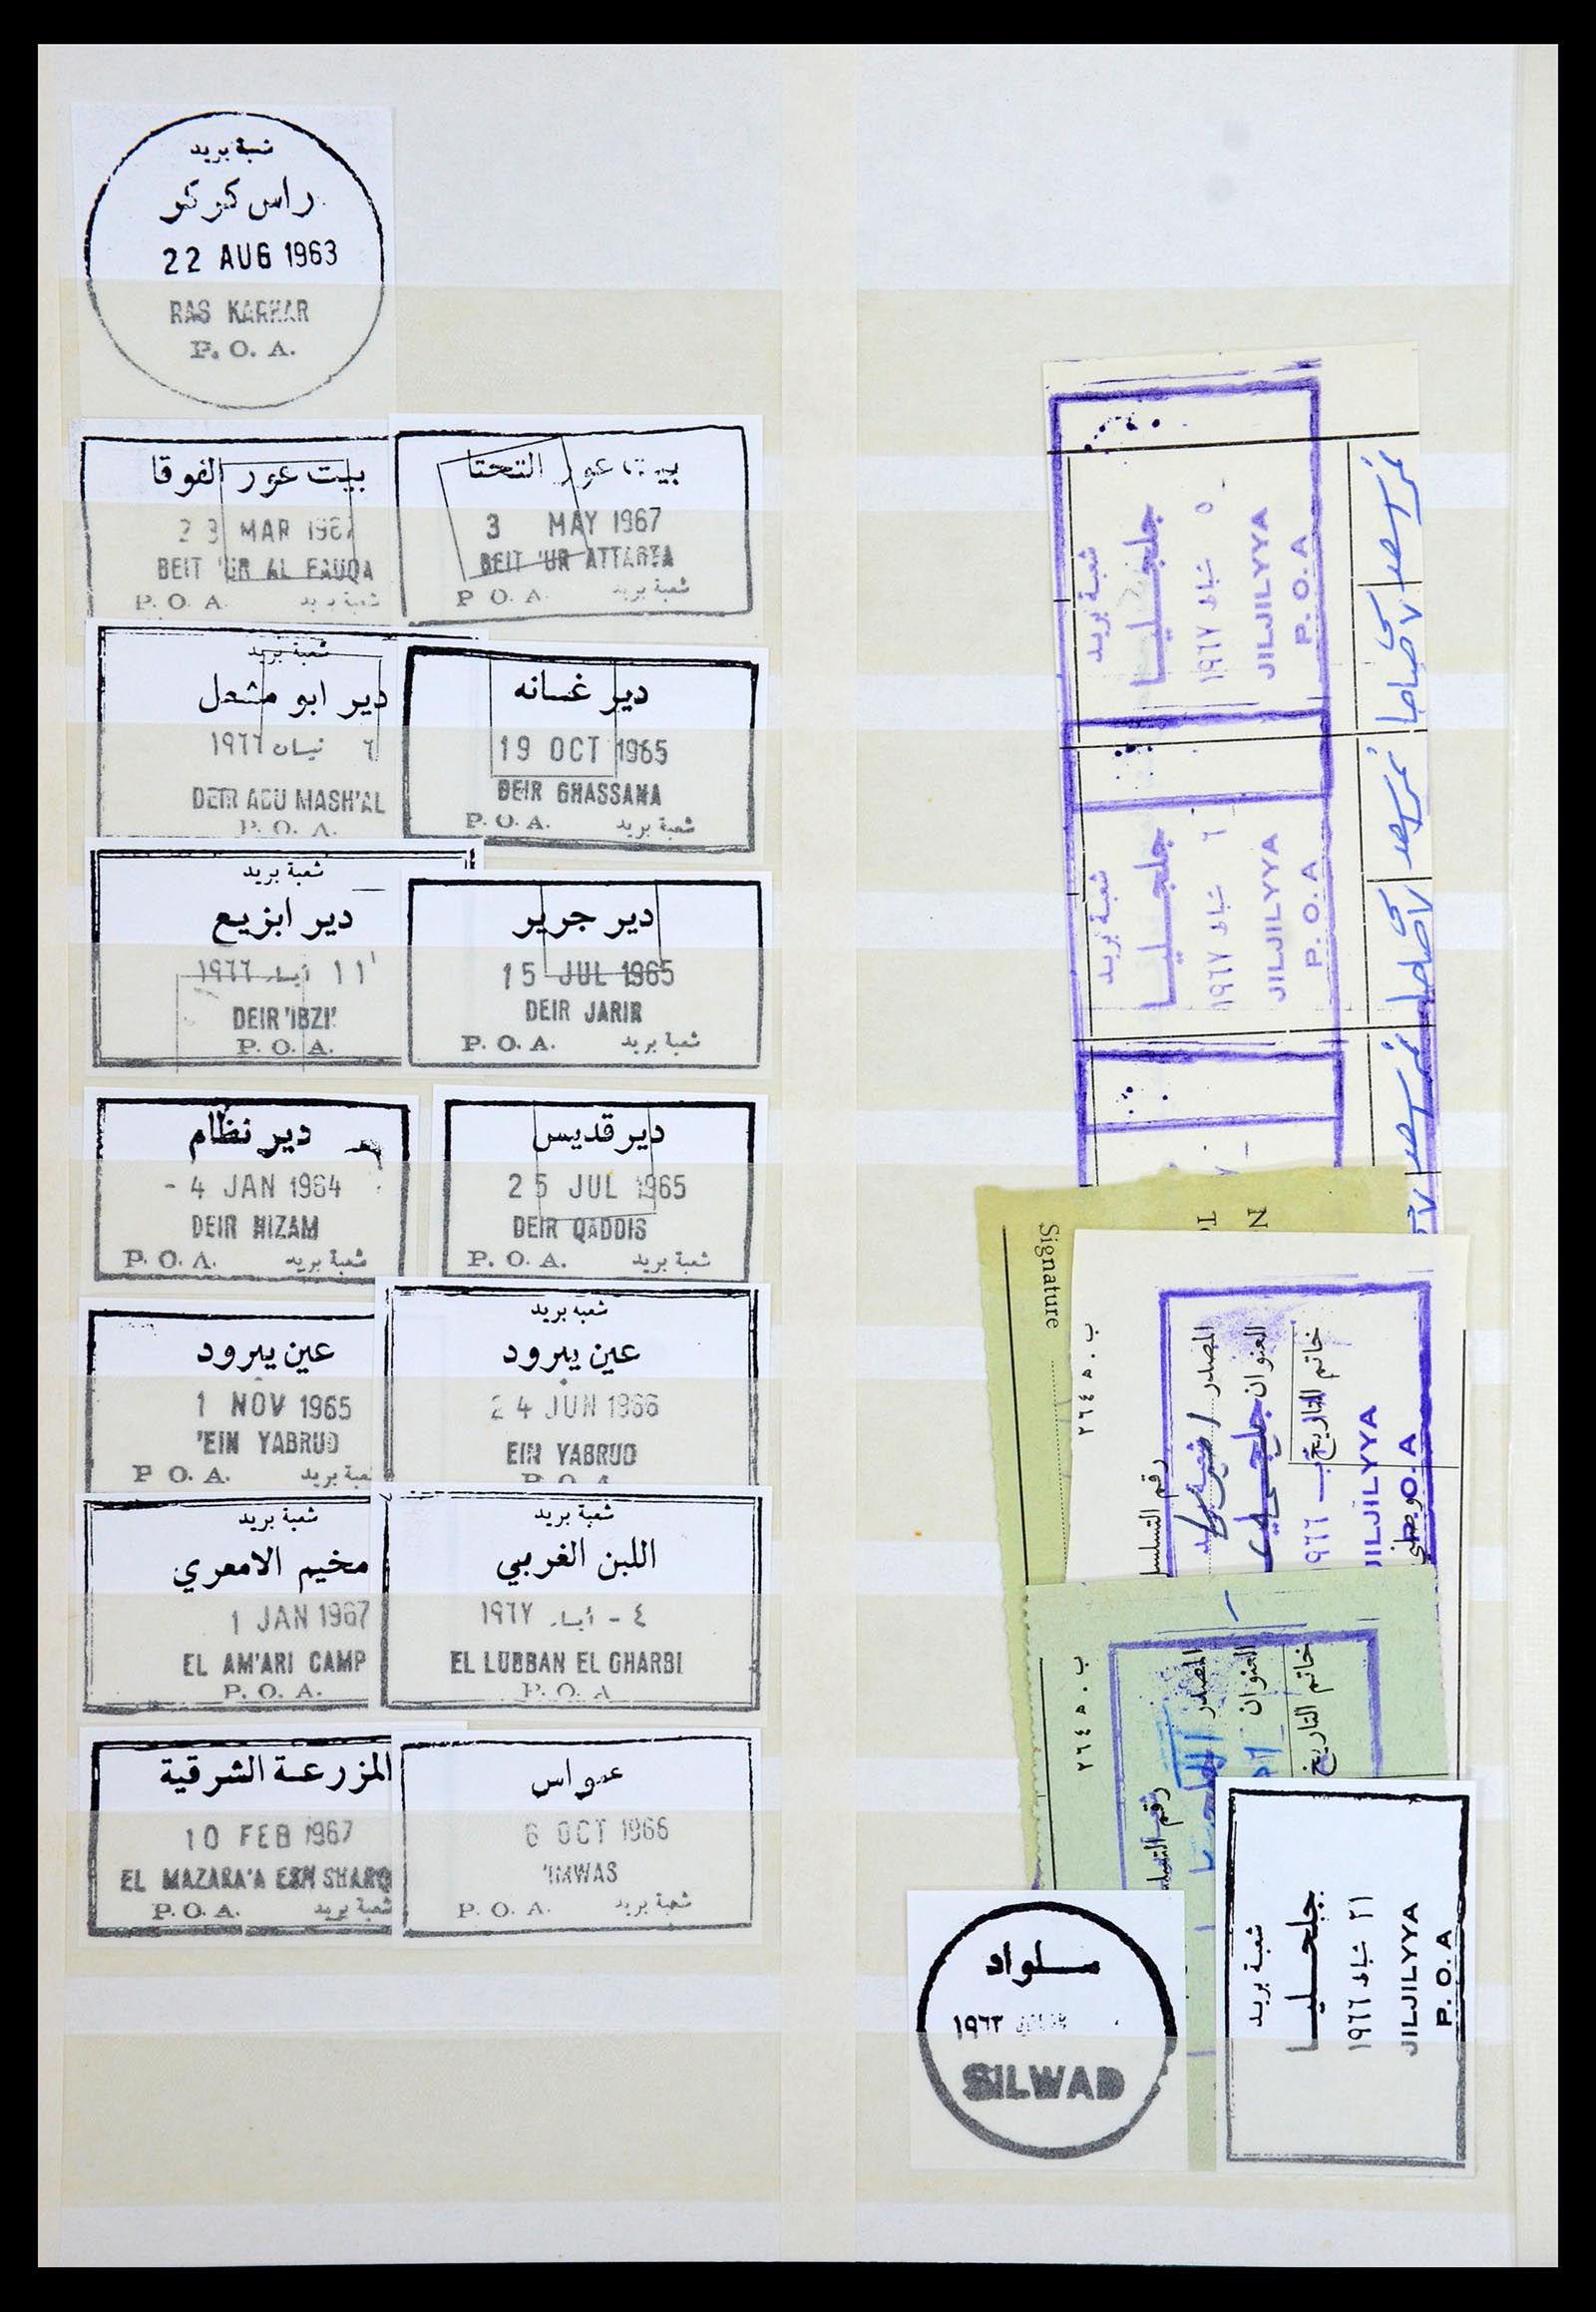 شعبة بريد
راس كركر
22 AUG 1963
RAS KARKAR
P. O. A.
بيت عور الفوقا
23 MAR 1967
BEIT 'UR AL FAUQA
P. O. A. شعبة بريد
بيت عور التحتا
3 MAY 1967
BEIT 'UR ATTAHTA
P O. A. شعبة بريد
شعبة بريد
دير ابو مشعل
٦ نيسان ١٩٦٦
DEIR ABU MASH'AL
P. O. A.
دير غسانه
19 OCT 1965
DEIR GHASSANA
P. O. A. شعبة بريد
شعبة بريد
دير ابزيع
١١ أيار ١٩٦٦
DEIR 'IBZI'
P. O. A.
دير جرير
15 JUL 1965
DEIR JARIR
P. O. A. شعبة بريد
دير نظام
- 4 JAN 1964
DEIR NIZAM
P. O. A. شعبة بريد
دير قديس
25 JUL 1965
DEIR QADDIS
P. O. A. شعبة بريد
عين يبرود
1 NOV 1965
'EIN YABRUD
P O. A. شعبة بريد
شعبه بريد
عين يبرود
24 JUN 1966
EIN YABRUD
P O A
شعبة بريد
مخيم الامعري
1 JAN 1967
EL AM'ARI CAMP
P. O. A.
شعبة بريد
اللبن الغربي
٤ - أيار ١٩٦٧
EL LUBBAN EL GHARBI
P. O. A
المزرعة الشرقية
10 FEB 1967
EL MAZARA'A ESH SHARQ
P. O. A. شعبة بريد
عمواس
6 OCT 1966
'IMWAS
P. O. A. شعبة بريد
شعبة بريد
جلجليا
٥ شباط ١٩٦٧
JILJILYYA
P. O. A
شعبة بريد
جلجليا
٦ شباط ١٩٦٧
JILJILYYA
P. O. A
Signature
ب . ٥ ٢٦٤
رقم التسلسل
المصدر
العنوان جلجليا
خاتم التاريخ
JILJILYYA
O. A
ب . ٥ ٢٦٤
المصدر
العنوان
خاتم التاريخ
سلواد
١٩٦٢
SILWAD
شعبة بريد
جلجليا
٢١ شباط ١٩٦٦
JILJILYYA
P. O. A